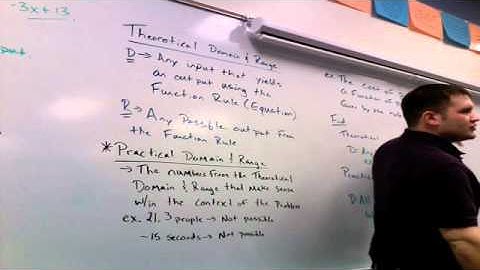 -3x+13
Theoretical Domain & Range
D → Any input that yields
an output using the
Function Rule (Equation)
R → Any Possible output from
the Function Rule
* Practical Domain & Range
→ The numbers from the Theoretical
Domain & Range that make sense
w/in the context of the Problem
ex. 21.3 people → Not possible
-15 seconds → Not possible
ex. The cost of
a function of
Given by the rule
Find
Theoretical
D: Any
Practical
D: All